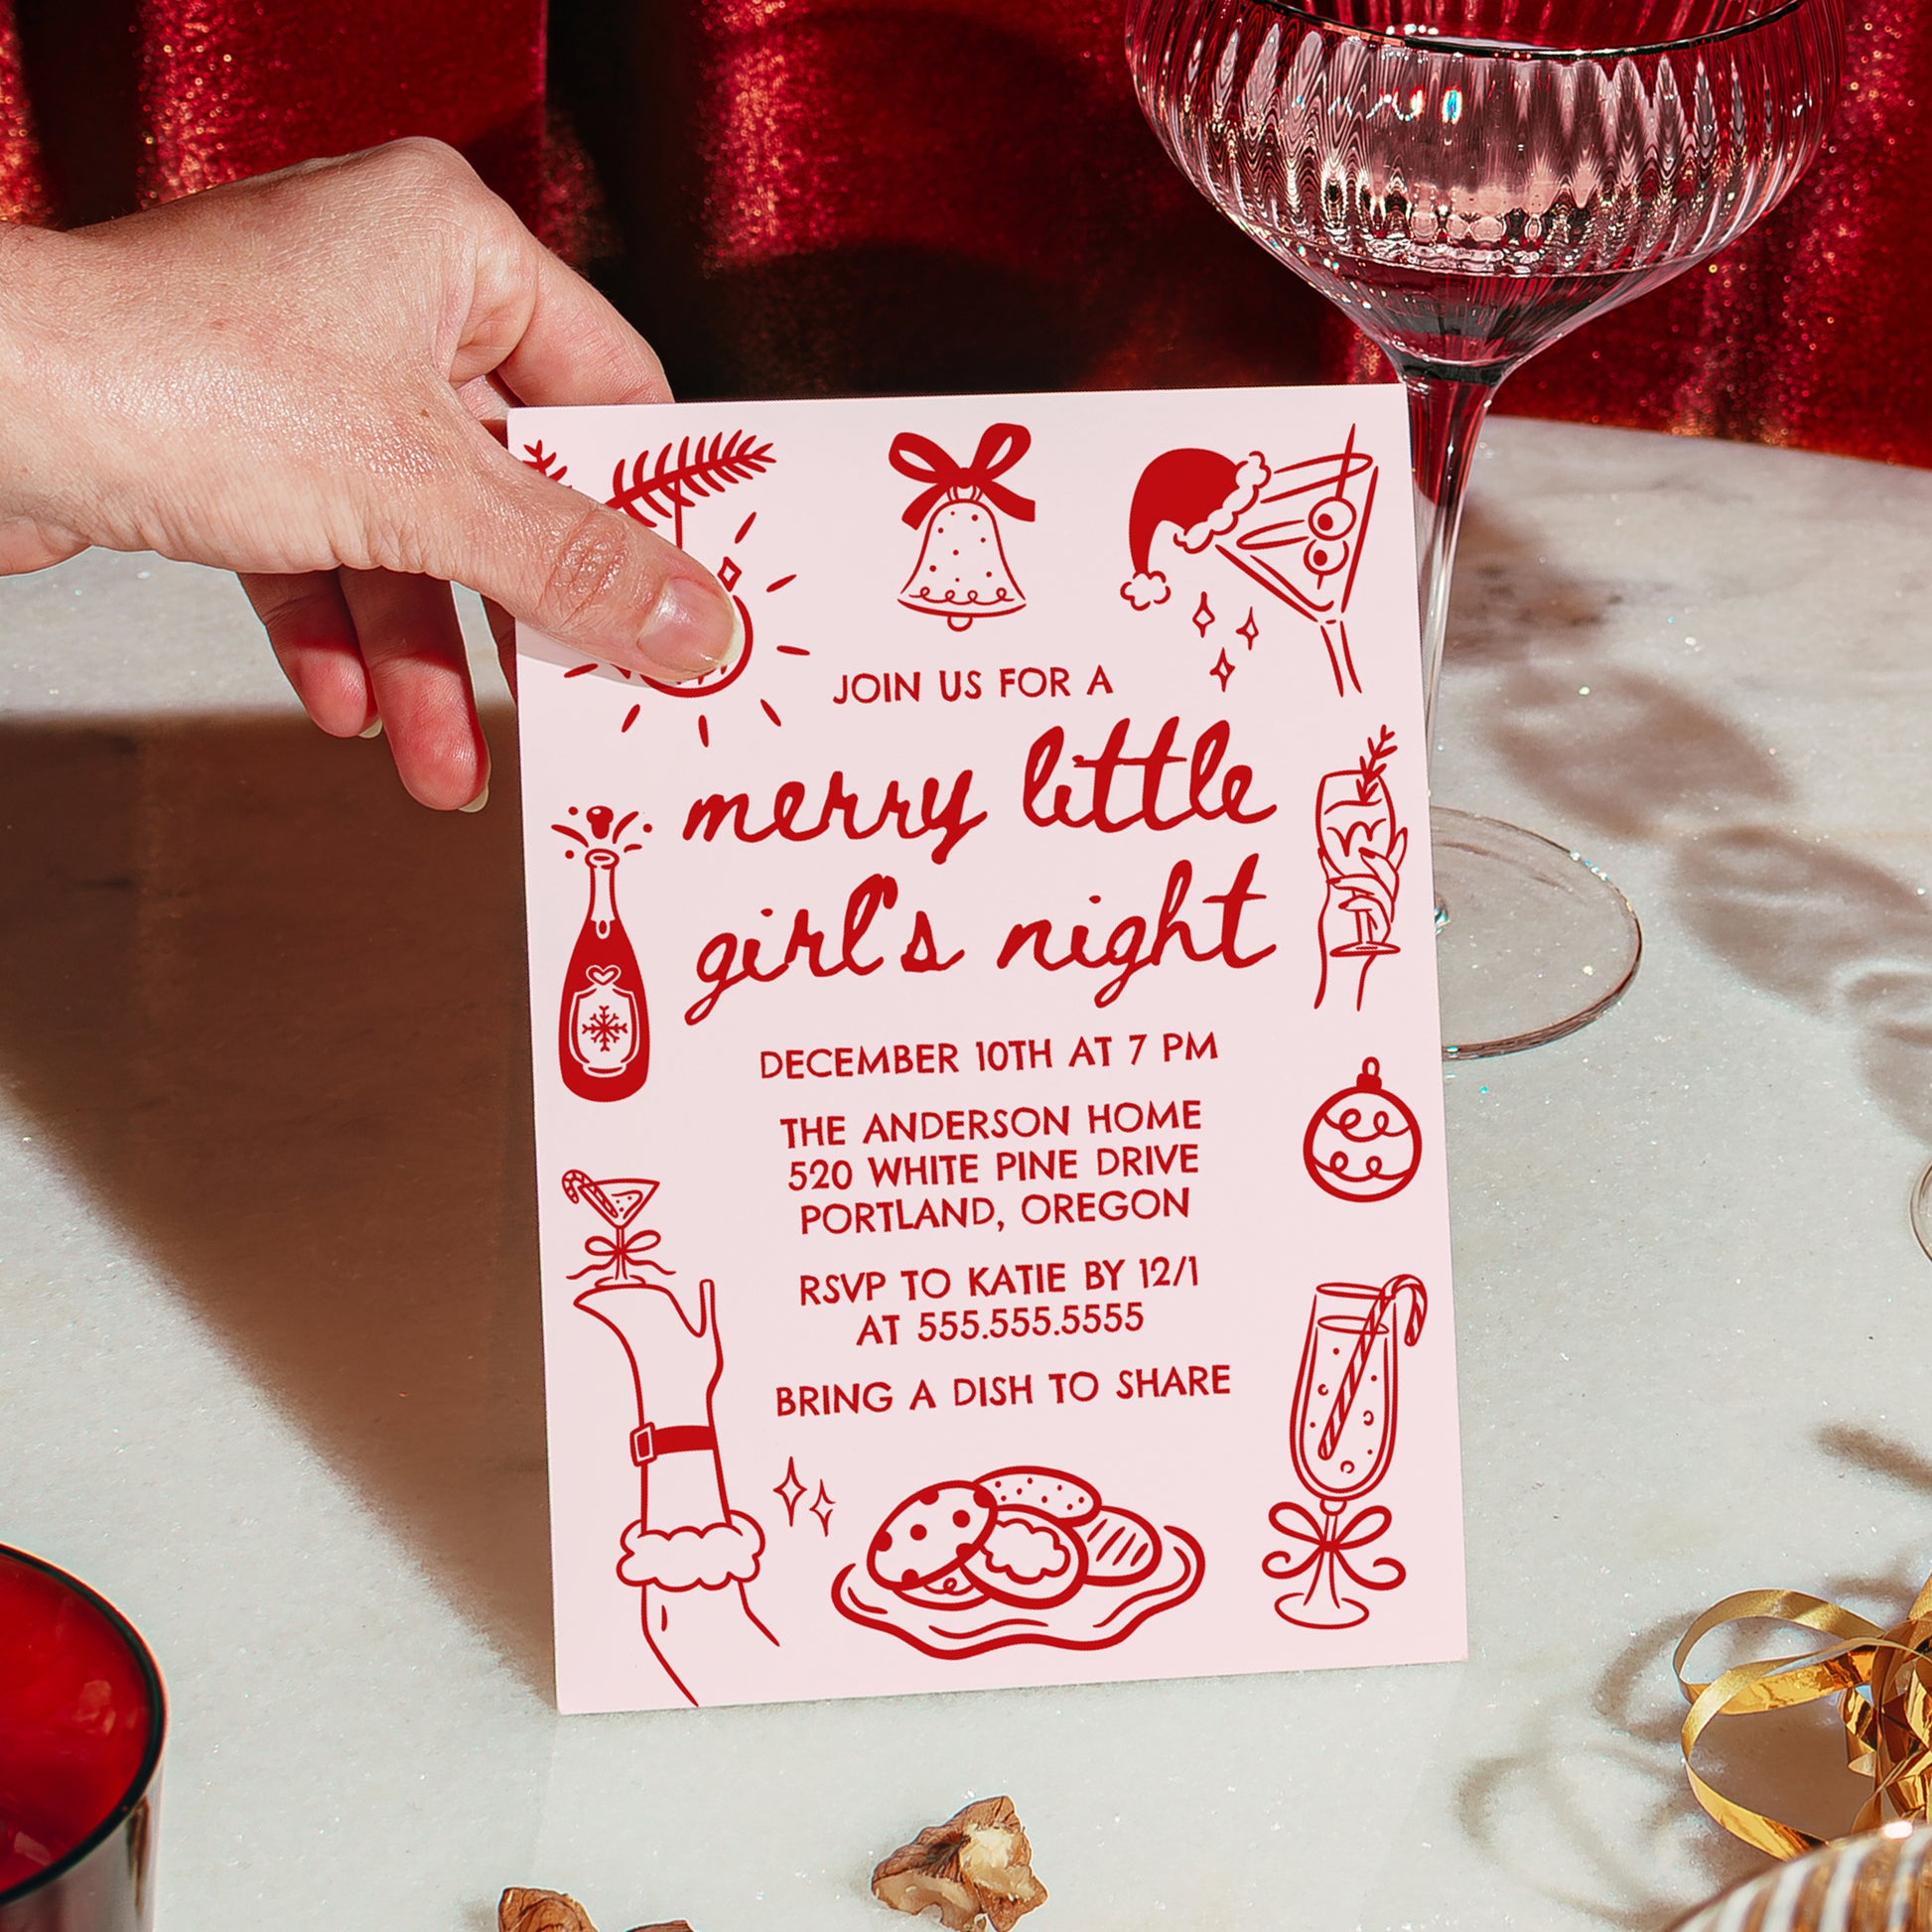 JOIN US FOR A
merry little
girl's night
DECEMBER 10TH AT 7 PM
THE ANDERSON HOME
520 WHITE PINE DRIVE
PORTLAND, OREGON
RSVP TO KATIE BY 12/1
AT 555.555.5555
BRING A DISH TO SHARE